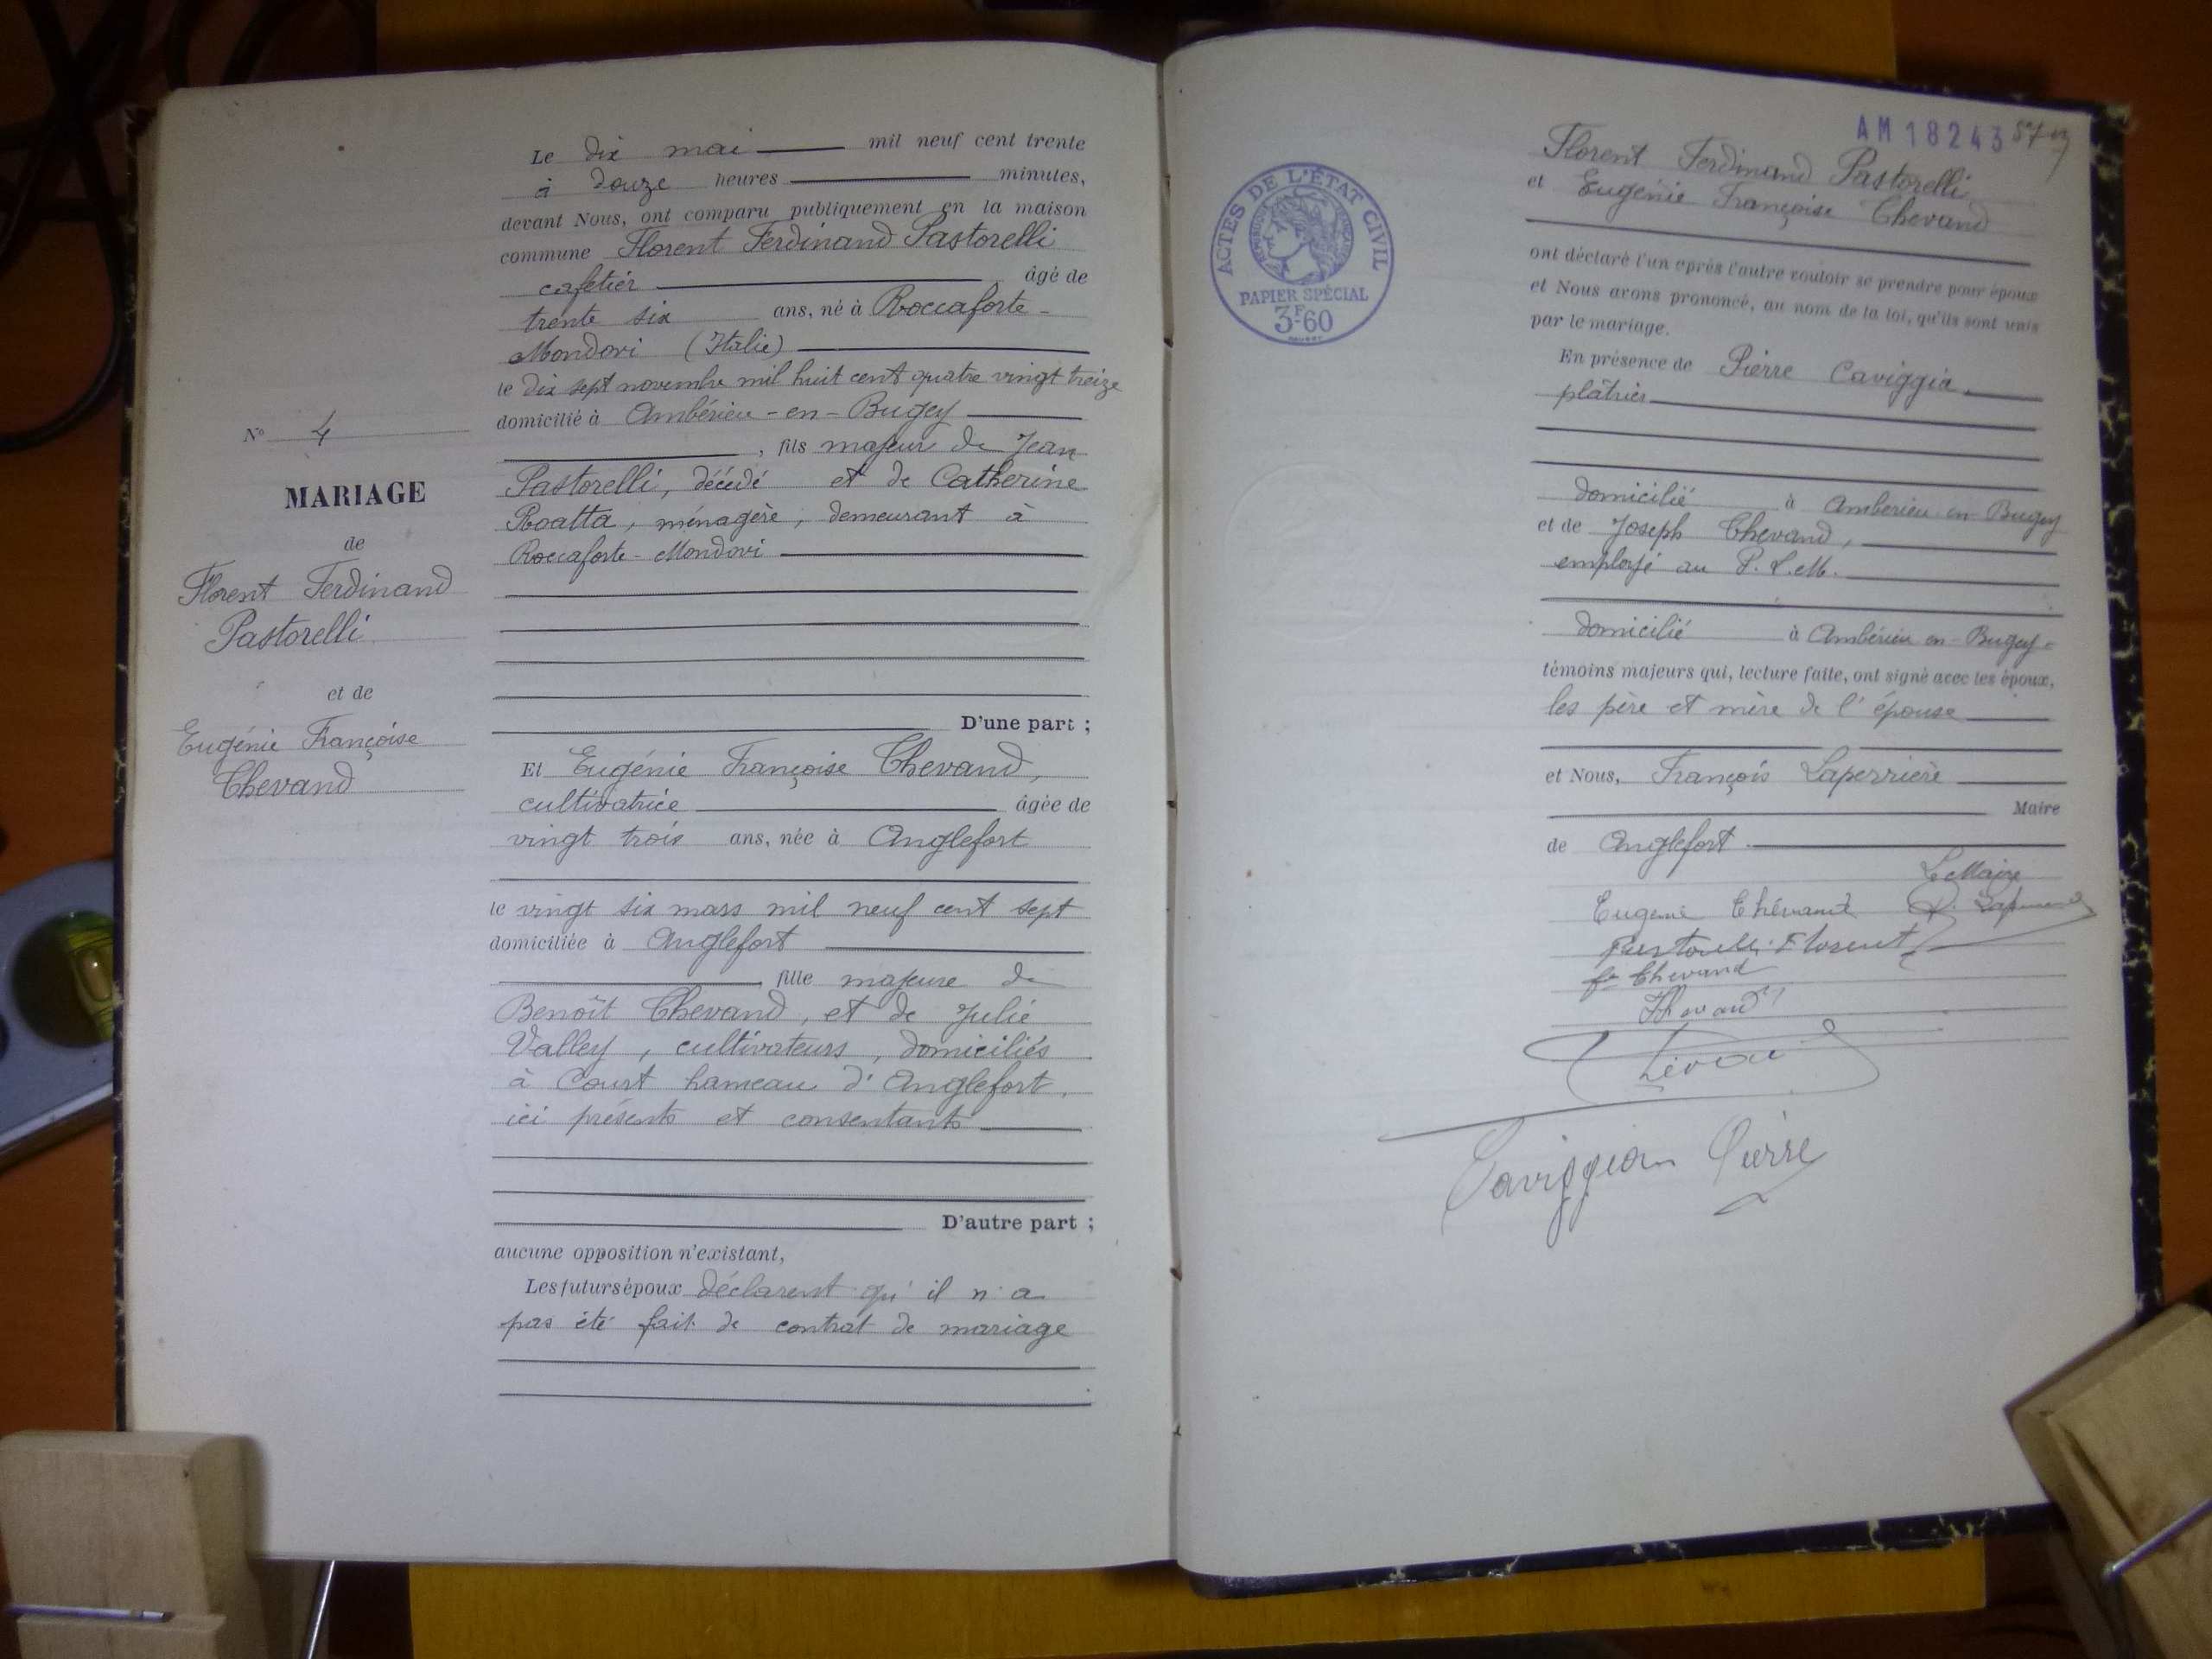 N° 4
MARIAGE
de
Florent Ferdinand
Pastorelli
et de
Eugénie Françoise
Chevand
Le dix mai mil neuf cent trente
à douze heures minutes,
devant Nous, ont comparu publiquement en la maison
commune Florent Ferdinand Pastorelli
cafetier âgé de
trente six ans, né à Roccaforte-
Mondovi (Italie)
le dix sept novembre mil huit cent quatre vingt treize
domicilié à Ambérieu-en-Bugey
, fils majeur de Jean
Pastorelli, décédé et de Catherine
Roatta, ménagère, demeurant à
Roccaforte-Mondovi
D'une part ;
Et Eugénie Françoise Chevand,
cultivatrice âgée de
vingt trois ans, née à Anglefort
le vingt six mars mil neuf cent sept
domiciliée à Anglefort
, fille majeure de
Benoît Chevand, et de Julie
Valley, cultivateurs, domiciliés
à Court hameau d'Anglefort,
ici présents et consentants
D'autre part ;
aucune opposition n'existant,
Les futurs époux déclarent qu'il n'a
pas été fait de contrat de mariage
AM 18243
ACTES DE L'ÉTAT CIVIL
RÉPUBLIQUE FRANÇAISE
PAPIER SPÉCIAL
3F60
Florent Ferdinand Pastorelli
et Eugénie Françoise Chevand
ont déclaré l'un après l'autre vouloir se prendre pour époux
et Nous avons prononcé, au nom de la loi, qu'ils sont unis
par le mariage.
En présence de Pierre Caviggia
plâtrier
domicilié à Ambérieu-en-Bugey
et de Joseph Chevand,
employé au P.L.M.
domicilié à Ambérieu-en-Bugey
témoins majeurs qui, lecture faite, ont signé avec les époux,
les père et mère de l'épouse
et Nous, François Laperrière
Maire
de Anglefort
Le Maire
Eugenie Chévand
Pastorelli Florent
fe Chevand
Chevand
Caviggia Pierre